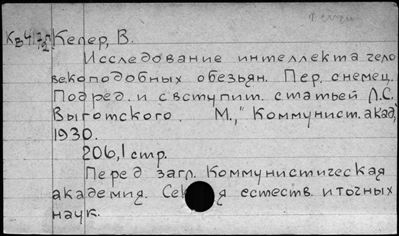 Келер, В.
Исследование интеллекта чело
векоподобных обезьян. Пер. с немец.
Под ред. и с вступит. статьей Л.С.
Выготского. М., "Коммунист. акад.",
1930.
206,1 стр.
Перед загл. Коммунистическая
академия. естеств. и точных
наук.